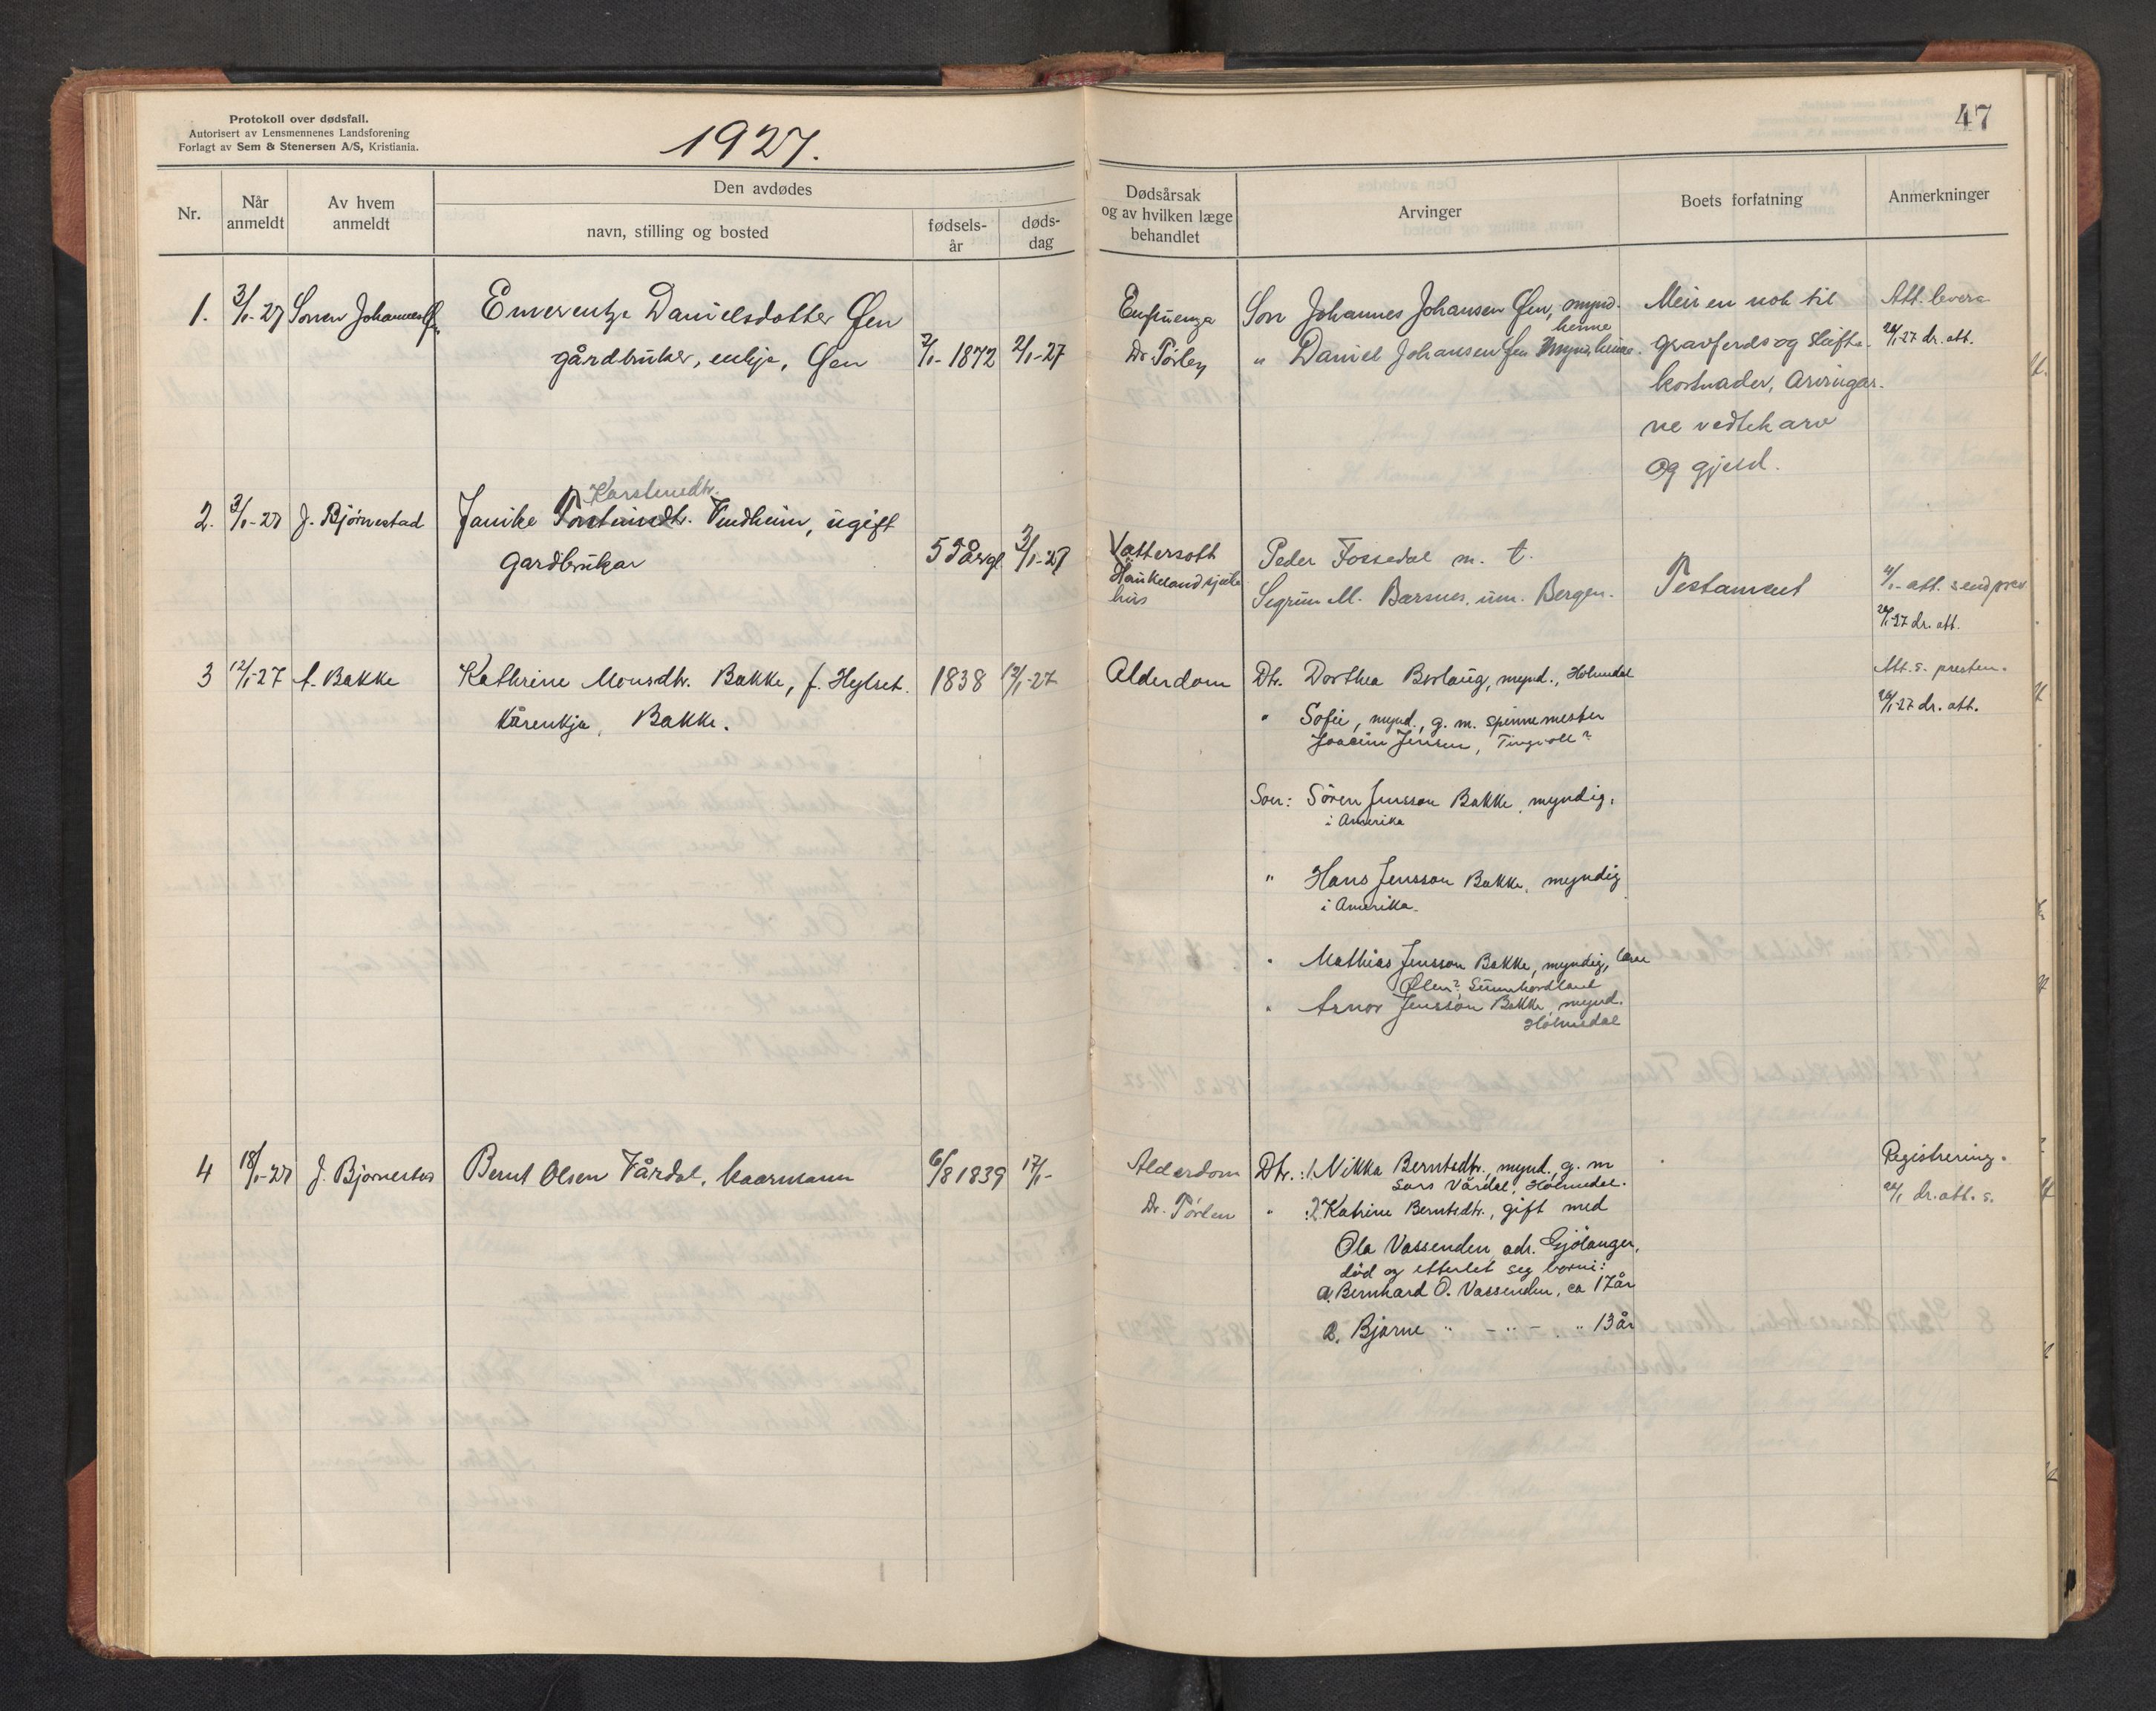 Protokoll over dødsfall.
Autorisert av Lensmennenes Landsforening
Forlagt av Sem & Stenersen A/S, Kristiania.
1927.
47
Nr.
Når anmeldt
Av hvem anmeldt
Den avdødes
navn, stilling og bosted
fødsels-år
døds-dag
Dødsårsak og av hvilken læge behandlet
Arvinger
Boets forfatning
Anmerkninger
1. 3/1-27 Sonen Johannes Øen
Emerentze Danielsdotter Øen
gårdbruker, enkje, Øen
2/1-1872 2/1-27
Dr. Törlen
Son Johannes Johansen Øen, mynd.
heime
" Daniel Johansen Øen mynd, heime.
Meir en nok til
gravferds og skifte-
kostnader, Arvingar-
ne vedtek arv
og gjeld.
Att. levera
24/1-27 dr. att.
2. 3/1-27 J. Björnestad
Karstendtr.
Janike Vindheim, ugift
gardbrukar
3/1-27
Vattersott
Haukeland sjuke
hus
Peder Fossedal m. t.
Sigrun M. Barsnes, um. Bergen.
Testament
4/1- att. send prex
24/1-27 dr. att.
3 12/1-27 A. Bakke
Kathrine Monsdtr. Bakke, f. Hylset.
Kårenkje, Bakke.
1838 12/1-27
Alderdom
Dtr. Dorthea Borlaug, mynd., Holmedal
" Sofie, mynd., g. m. spinnemester
Joacim Jensen, Tingvoll?
Son: Sören Jensson Bakke, myndig,
i Amerika
" Hans Jensson Bakke, myndig
i Amerika
" Mathias Jensson Bakke, myndig,
Ølen? Sunnhordland
" Arnor Jensson Bakke, mynd.
Holmedal
Att. s. presten.
24/1-27 dr. att.
4 18/1-27 J. Björnestad
Bernt Olsen Vårdal, kaarmann
6/8 1839 17/1-
Alderdom
Dr. Törlen
Dtr. :1. Nikka Berntsdtr., mynd., g. m
Lars Vårdal, Holmedal.
" :2. Katrine Berntsdtr., gift med
Ola Vassenden, adr. Gjölanger,
död og etterlet seg borni:
a. Bernhard O. Vassenden, ca 17 år
b. Bjarne " - " - " 13 år
Registrering.
24/1 dr. att. s.